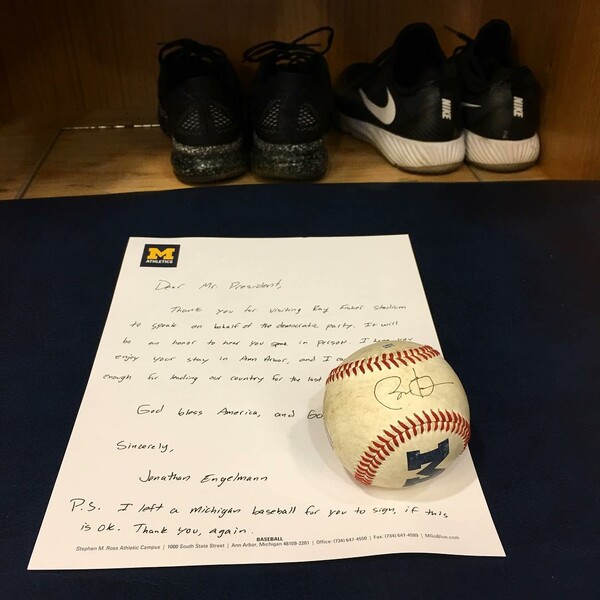 NIKE
NIKE
M
ATHLETICS
Dear Mr. President,
Thank you for visiting Ray Fisher Stadium
to speak on behalf of the democratic party. It will
be an honor to hear you speak in person. I hope you
enjoy your stay in Ann Arbor, and I
enough for leading our country for the last
God bless America, and
Sincerely,
Jonathan Engelmann
P.S. I left a Michigan baseball for you to sign, if this
is ok. Thank you, again.
BASEBALL
Stephen M. Ross Athletic Campus | 1000 South State Street | Ann Arbor, Michigan 48109-2201 | Office: (734) 647-4550 | Fax: (734) 647-4589 | MGoBlue.com
M